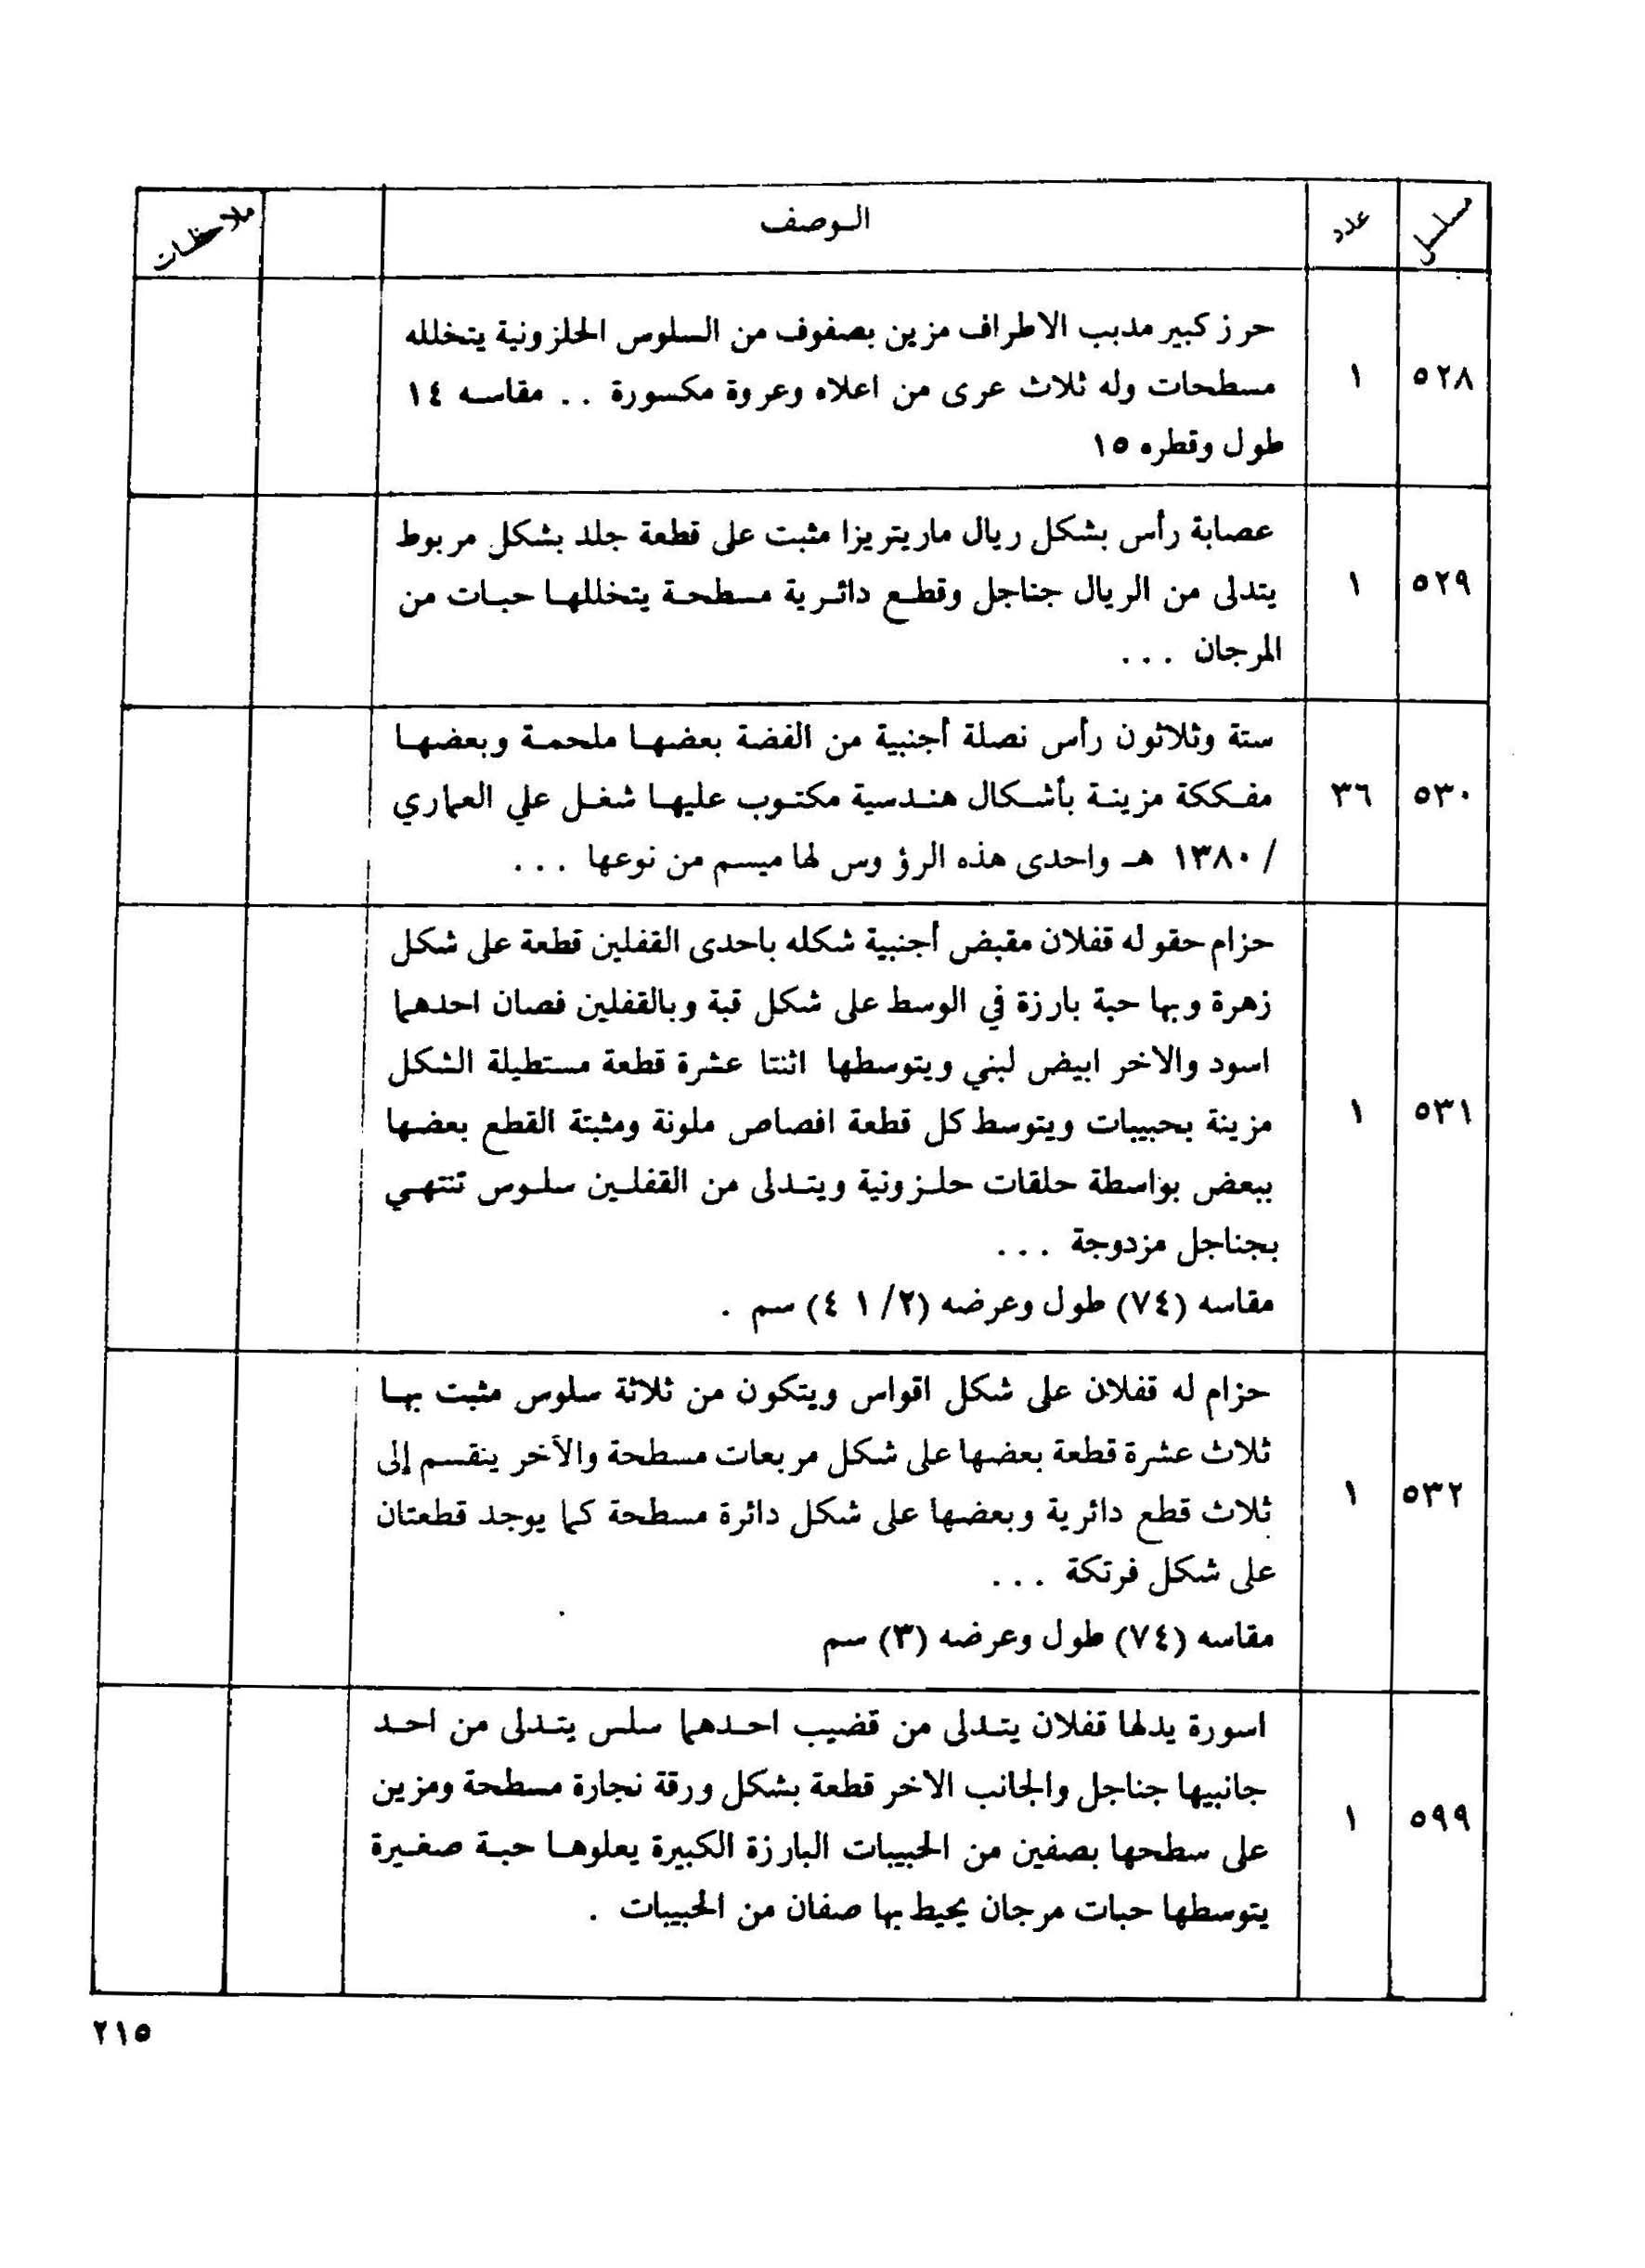 مسلسل عدد الـوصف ملاحظـات
حرز كبير مدبب الاطراف مزين بصفوف من السلوس الحلزونية يتخلله
٥٢٨ ١ مسطحات وله ثلاث عرى من اعلاه وعروة مكسورة . . مقاسـه ١٤
طول وقطره ١٥
عصابة رأس بشكل ريال ماريتريزا مثبت على قطعة جلد بشكل مربوط
٥٢٩ ١ يتدلى من الريال جناجل وقطـع دائـرية مسطحـة يتخللهـا حبـات من
المرجان . . .
ستة وثلاثون رأس نصلة أجنبية من الفضة بعضهـا ملحمـة وبعضهـا
٥٣٠ ٣٦ مفـككة مزينـة بأشـكال هنـدسية مكتـوب عليهـا شغـل علي العماري
/ ١٣٨٠ هـ واحدى هذه الرؤوس لها ميسم من نوعها . . .
حزام حقو له قفلان مقبض أجنبية شكله باحدى القفلين قطعة على شكل
زهرة وبها حبة بارزة في الوسط على شكل قبة وبالقفلين فصان احدهما
اسود والاخر ابيض لبني ويتوسطها اثنتا عشرة قطعة مستطيلة الشكل
٥٣١ ١ مزينة بحبيبات ويتوسط كل قطعة افصاص ملونة ومثبتة القطع بعضهـا
ببعض بواسطة حلقات حلـزونية ويتـدلى من القفلـين سلـوس تنتهـي
بجناجل مزدوجة . . .
مقاسه (٧٤) طول وعرضه (١/٢ ٤) سم .
حزام له قفلان على شكل اقواس ويتكون من ثلاثة سلوس مثبت بهـا
ثلاث عشرة قطعة بعضها على شكل مربعات مسطحة والآخر ينقسم إلى
٥٣٢ ١ ثلاث قطع دائرية وبعضها على شكل دائرة مسطحة كما يوجد قطعتان
على شكل فرتكة . . .
مقاسه (٧٤) طول وعرضه (٣) سم
اسورة يدلها قفلان يتـدلى من قضيب احـدهما سلس يتـدلى من احـد
جانبيها جناجل والجانب الاخر قطعة بشكل ورقة نجارة مسطحة ومزين
٥٩٩ ١ على سطحها بصفين من الحبيبات البارزة الكبيرة يعلوهـا حبـة صغـيرة
يتوسطها حبات مرجان يحيط بها صفان من الحبيبات .
٢١٥